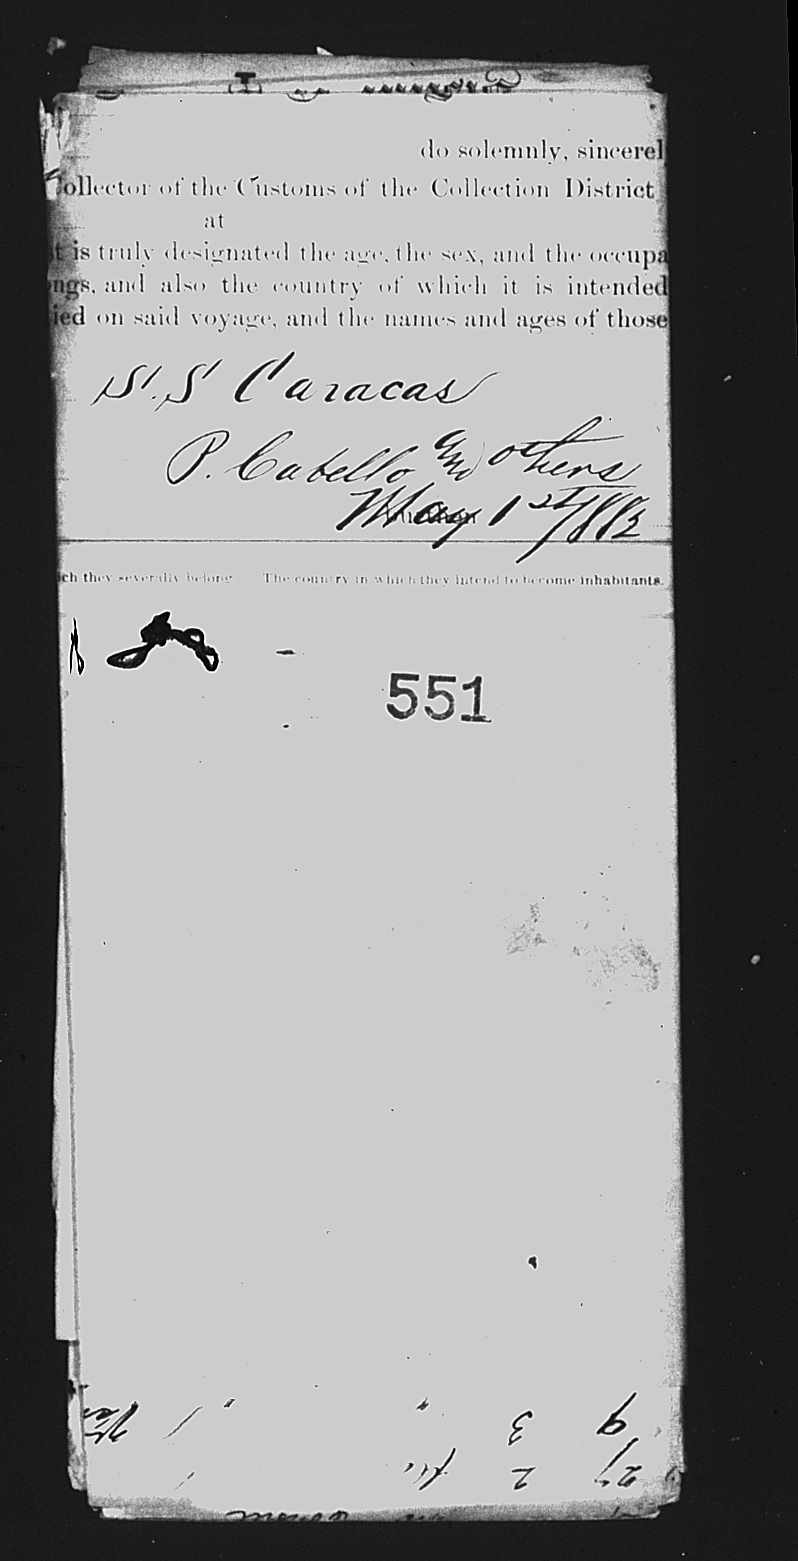 do solemnly, sincerel
ollector of the Customs of the Collection District
at
t is truly designated the age, the sex, and the occupa
ngs, and also the country of which it is intended
ied on said voyage, and the names and ages of those
S.S Caracas
P. Cabello and others
May 1st/1882
ch they severally belong. The country in which they intend to become inhabitants.
551
9 3 "
27 2